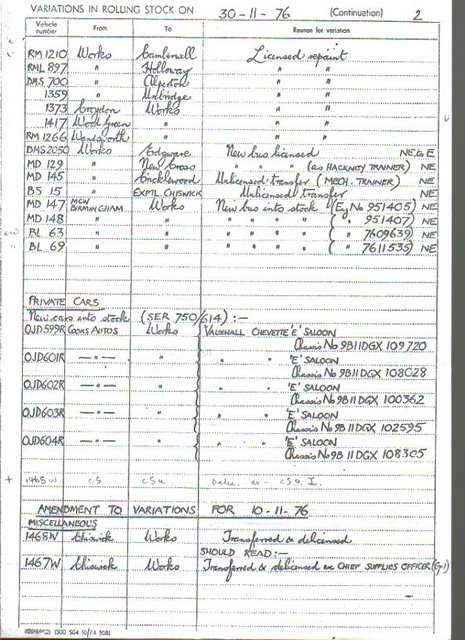 VARIATIONS IN ROLLING STOCK ON 30-11-76 (Continuation) 2
Vehicle number From To Reason for variation
RM 1210 Works Camberwell Licensed repaint
RML 897 " Holloway " "
DMS 700 " Alperton " "
1359 " Uxbridge " "
1373 Croydon Works " "
1417 Wood Green " " "
RM 1266 Wandsworth " " "
DMS 2050 Works Edgware New bus licensed NE to E
MD 129 " New Cross " " (as HACKNEY TRAINER) NE
MD 145 " Cricklewood Unlicensed transfer (MECH. TRAINER) NE
BS 15 " EXPTL. CHISWICK Unlicensed transfer NE
MD 147 MCW BIRMINGHAM Works New bus into stock (Eng No 951405) NE
MD 148 " " " " " " ( " 951407) NE
BL 63 " " " " " " ( " 7609639) NE
BL 69 " " " " " " ( " 7611535) NE
PRIVATE CARS
New cars into stock (SER 750/614) :-
OJD599R COOKS AUTOS Works VAUXHALL CHEVETTE 'E' SALOON
Chassis No 9B11DGX 109720
OJD601R — " — " " " 'E' SALOON
Chassis No 9B11DGX 108028
OJD602R — " — " " " 'E' SALOON
Chassis No 9B11 DGX 100362
OJD603R — " — " " " 'E' SALOON
Chassis No 9B11 DGX 102595
OJD604R — " — " " " 'E' SALOON
Chassis No 9B11 DGX 108305
+ 1465W CS CSa
AMENDMENT TO VARIATIONS FOR 10-11-76
MISCELLANEOUS
1468W Chiswick Works Transferred & delicensed
SHOULD READ:-
1467W Chiswick Works Transferred & delicensed ex CHIEF SUPPLIES OFFICER (G1)